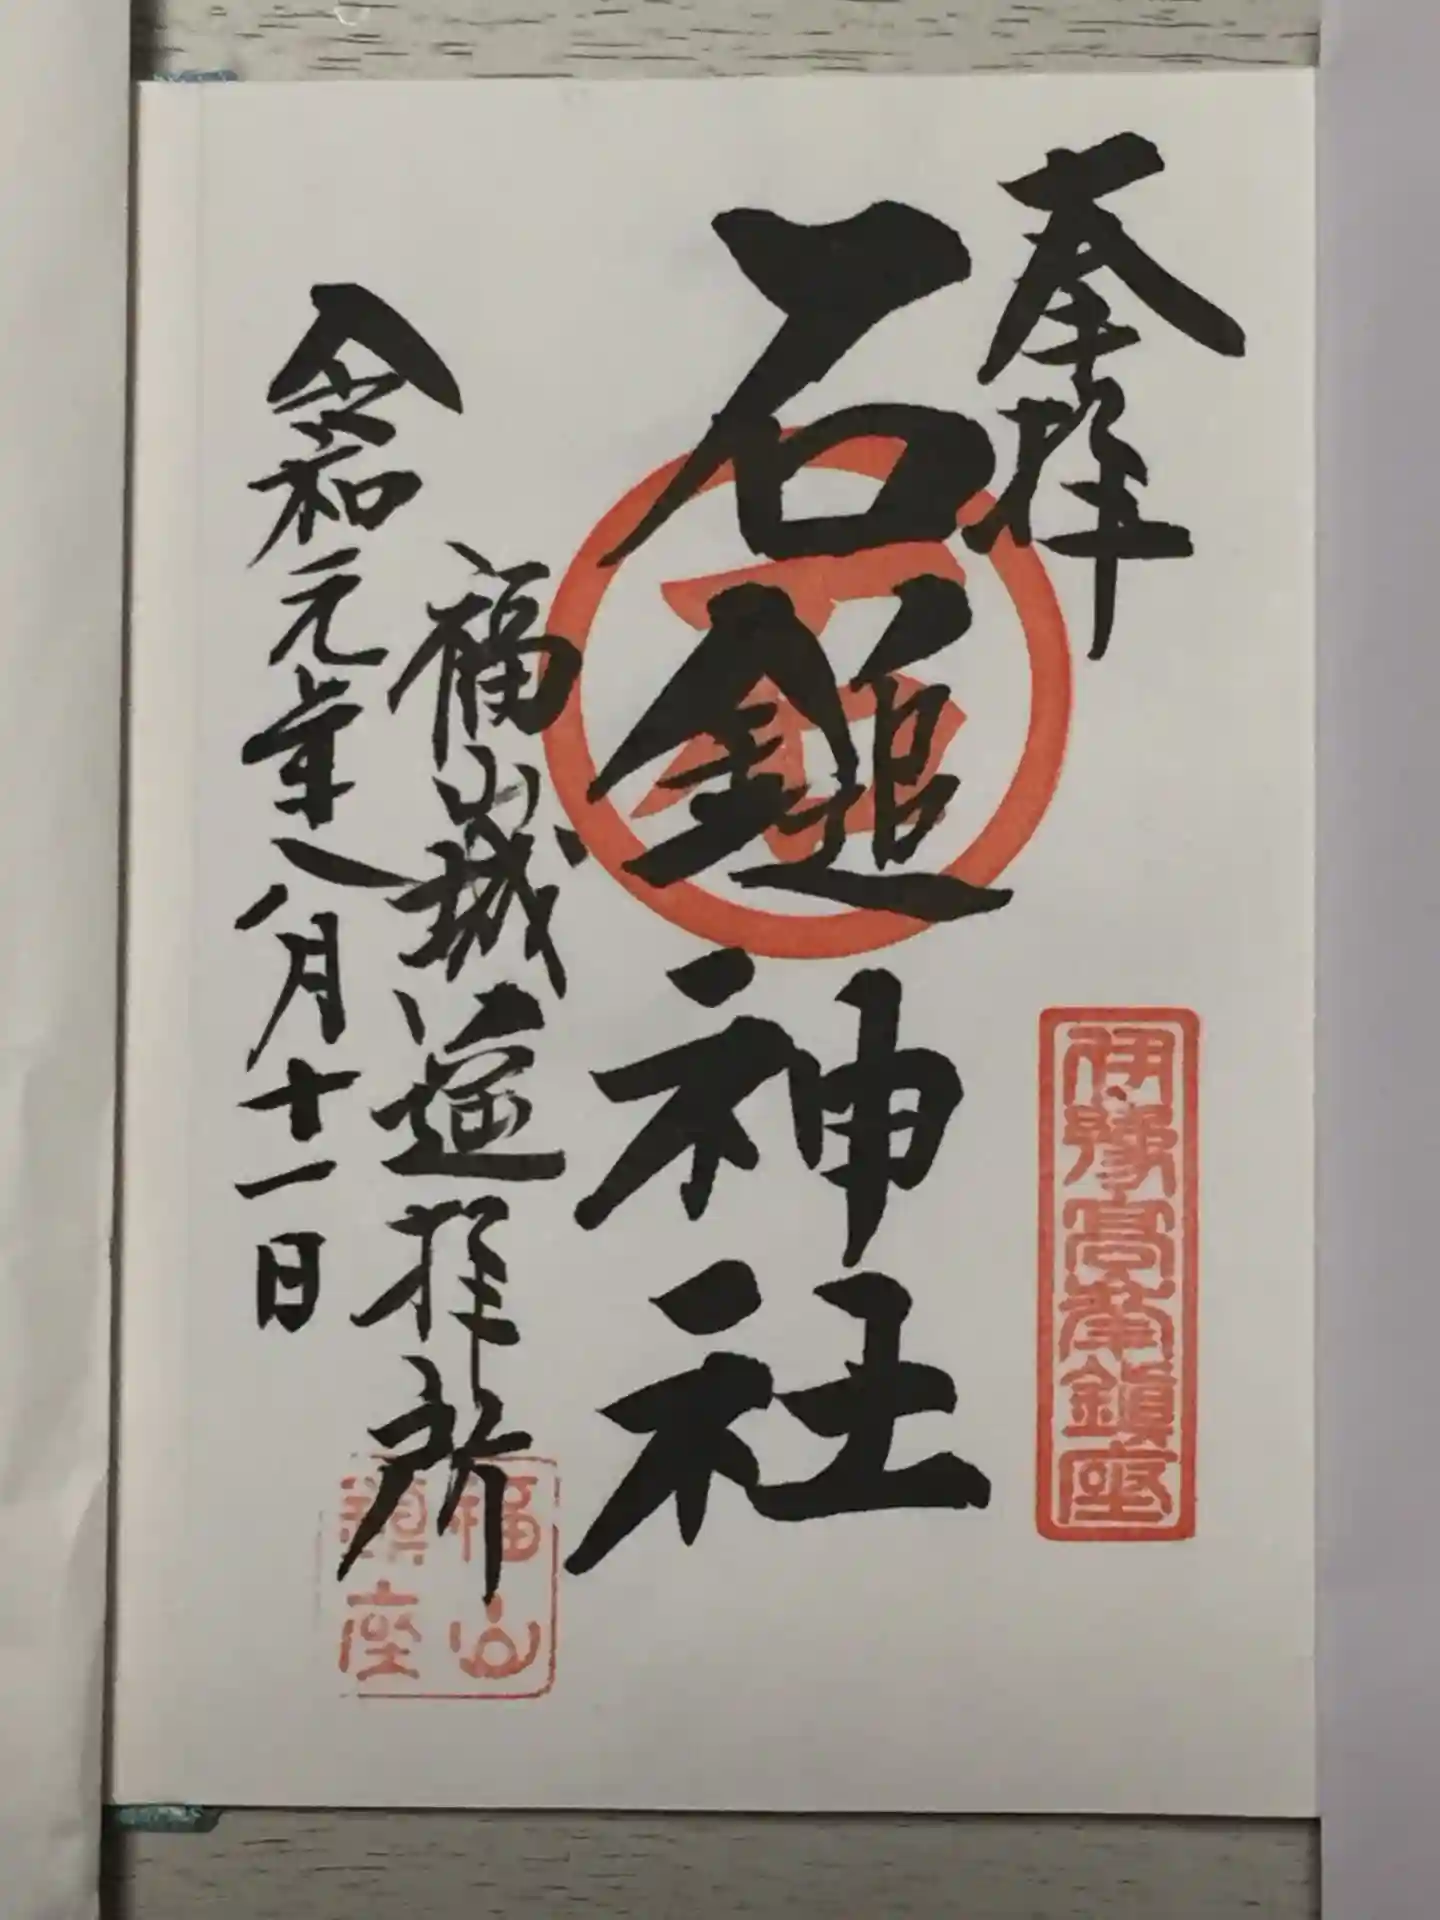 奉拝
伊豫高峯鎮座
石鎚神社
福山城遥拝所
福山
鎮座
令和元年八月十一日